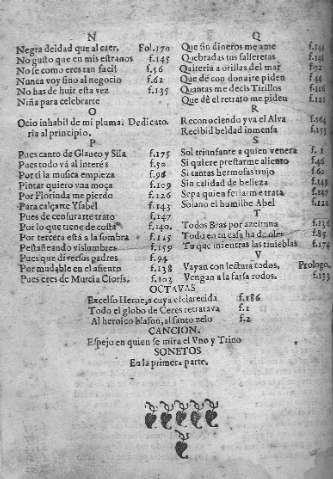 N
Negra deidad que al Fol.170
No gusto que en mis estraños f.145
No se como eres tan facil f.56
Nunca voy sino al negocio f.62
No has de huir esta vez f.135
Niña para celebrarte
O
Ocio inhabil de mi pluma. Dedicato
ria al principio.
P
Pues canto de Glauco y Sila f.175
Pues todo va al interes f.50
Por ti la musica empieza
Pintar quiero vna moça f.109
Por Florinda me pierdo f.126
Para calçarte Ysabel f.143
Pues de censurarte trato f.147
Por lo que tiene de costa f.140.
Por tercera està a la sombra f.145
Pestañeando vislumbres f.159
Pues que diversos padres f.94
Por mudable en el asiento f.138
Pues eres de Murcia f.102
Q
Que sin dineros me ame
Quebradas tus
Quiteria a orillas del mar
Que dè con donaire piden f.44
Quantas me decis Tirillos f.116
Que dè el retrato me piden f.121
R
Reconociendo yva el Alva
Recibid beldad inmensa f.155
S
Sol triunfante a quien venera f.1
Si quiere prestarme aliento f.46
Si tantas hermosas trujo f.62
Sin calidad de belleza
Sepa quien
Solano el humilde Abel f.124
T
Todos Bras por azeituna f.136
Todo en tu casa ha de ser f.85
Tu que mientras las tinieblas f.174
V
Vayan con letura todos. Prologo.
Vengan a la farsa todos. f.133
OCTAVAS
Excelso Heroe, a cuya esclarecida f.186
Todo el globo de Ceres retratava f.1
Al heroico blason, al santo zelo f.2
CANCION.
Espejo en quien se mira el Vno y Trino
SONETOS
En la primera parte.